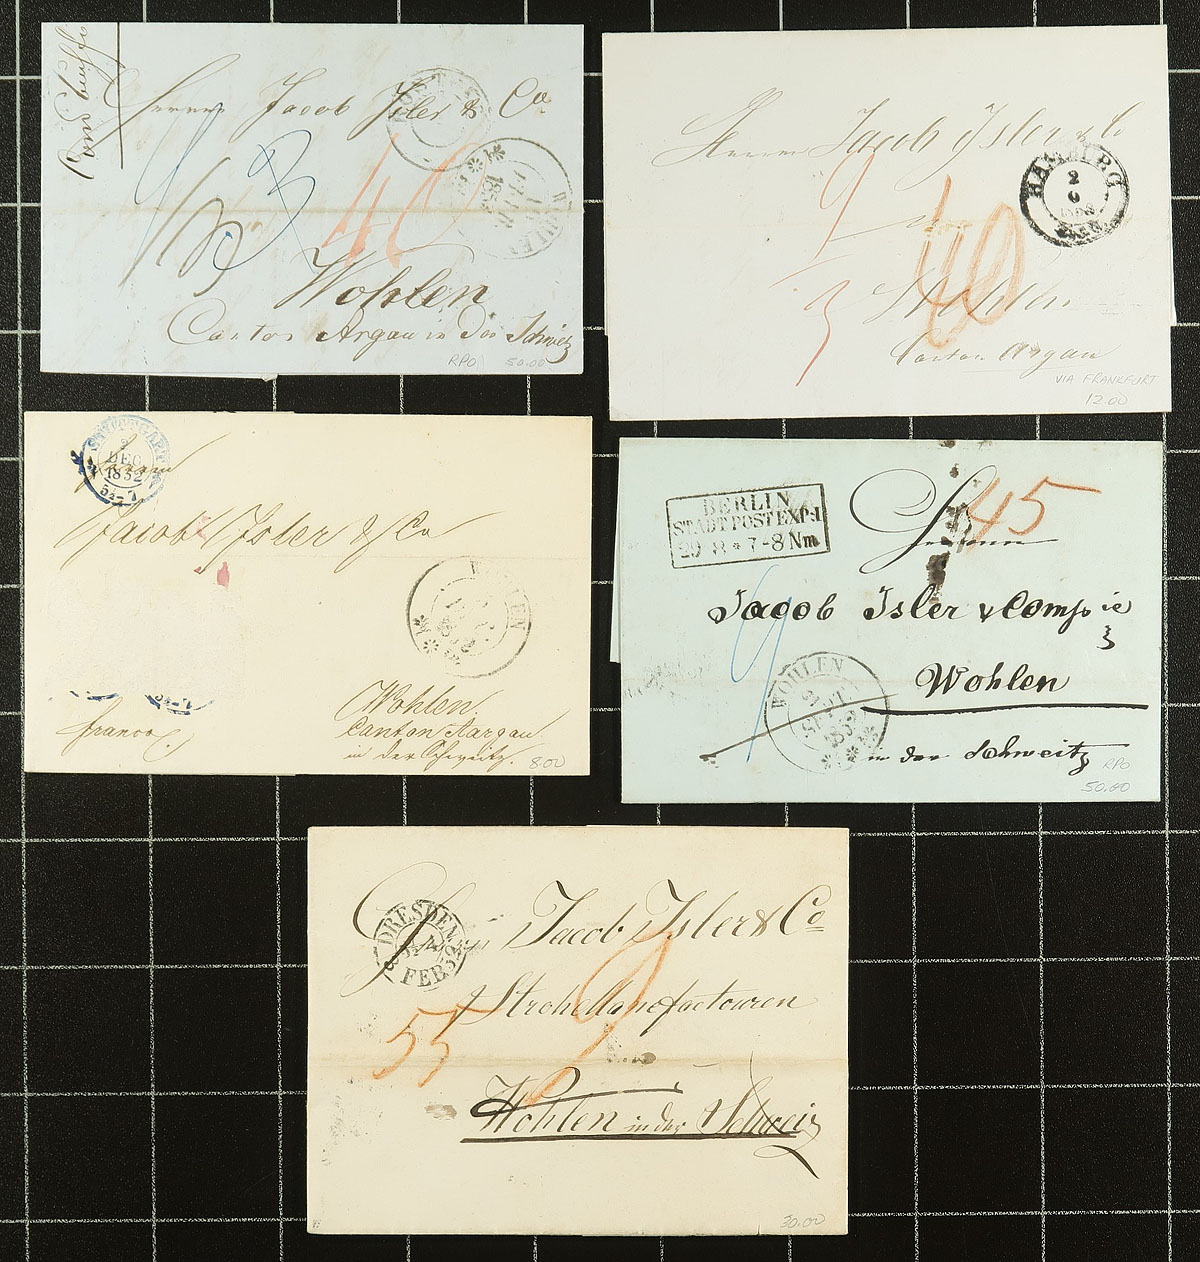 Jacob Isler & Co
40
Wohlen
Canton Argau in
RPO 50.00
Jacob Isler & Co
HAMBURG
2
9
40
Canton Argau
VIA FRANKFURT
12.00
STUTTGART
2
DEC
1852
5½-7
Jacob Isler & Co
Wohlen
Canton Aargau
in der Schweitz.
franco
8.00
BERLIN
STADTPOSTEXP:I
29 8 * 7-8 Nm
45
Jacob Isler & Compie
9
Wohlen
WOHLEN
SEPT
in der Schweitz
RPO
50.00
DRESDEN
FEB 52
Jacob Isler & Co
55
9
Wohlen in der Schweiz
30.00